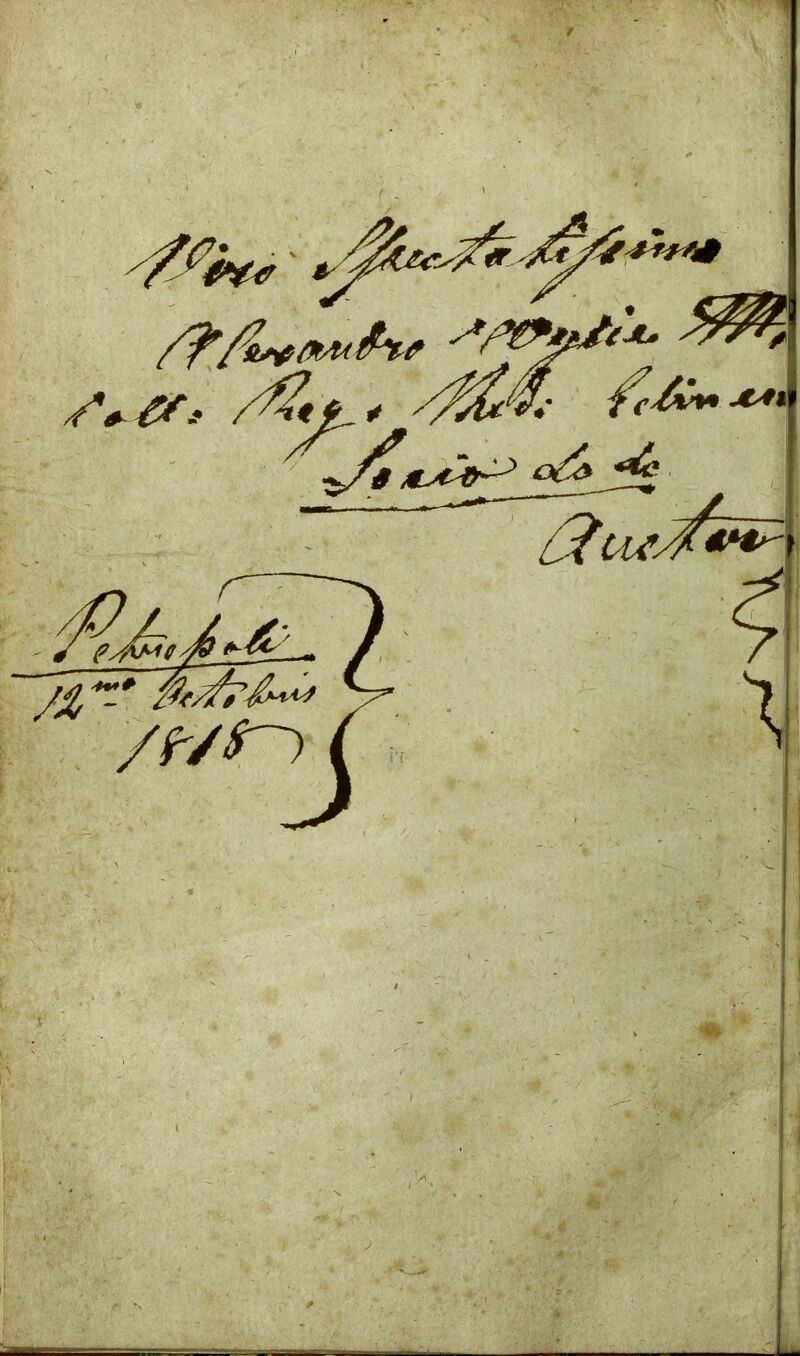 Viro Spectatissimo
Alexandro
Coll: Reg: Med: Edin en
Socio do do
Auctor
Petropoli
12mo Octobris
1818